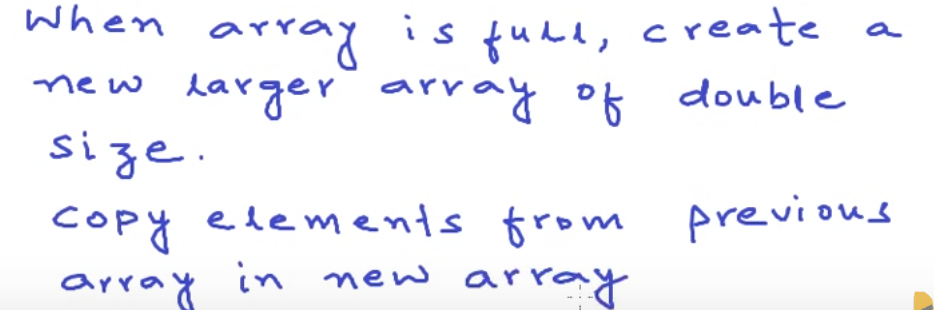 When array is full, create a
new larger array of double
size.
copy elements from previous
array in new array